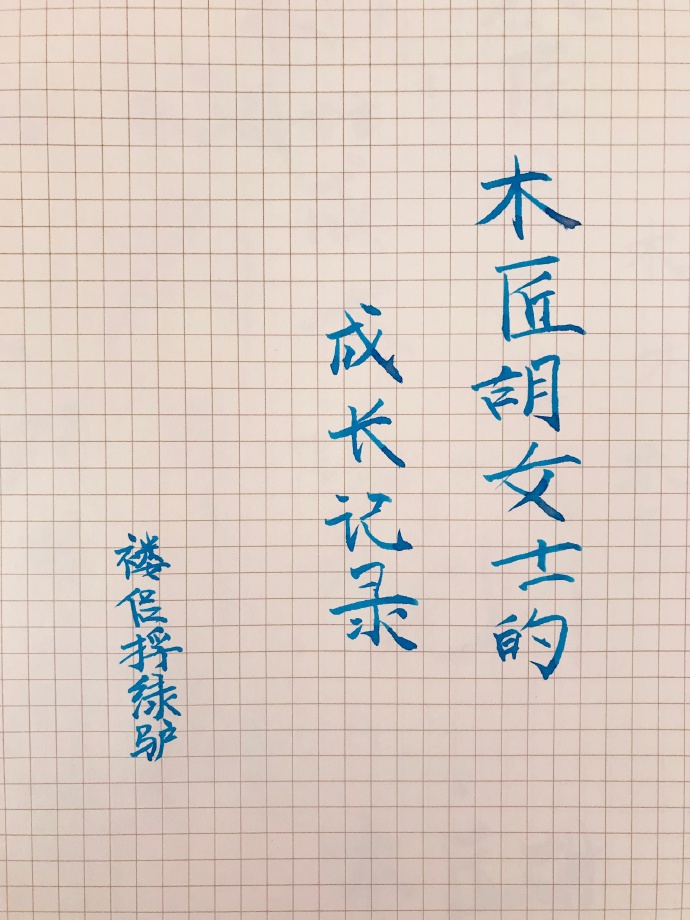 木匠胡女士的
成长记录
褛侣捋绿驴